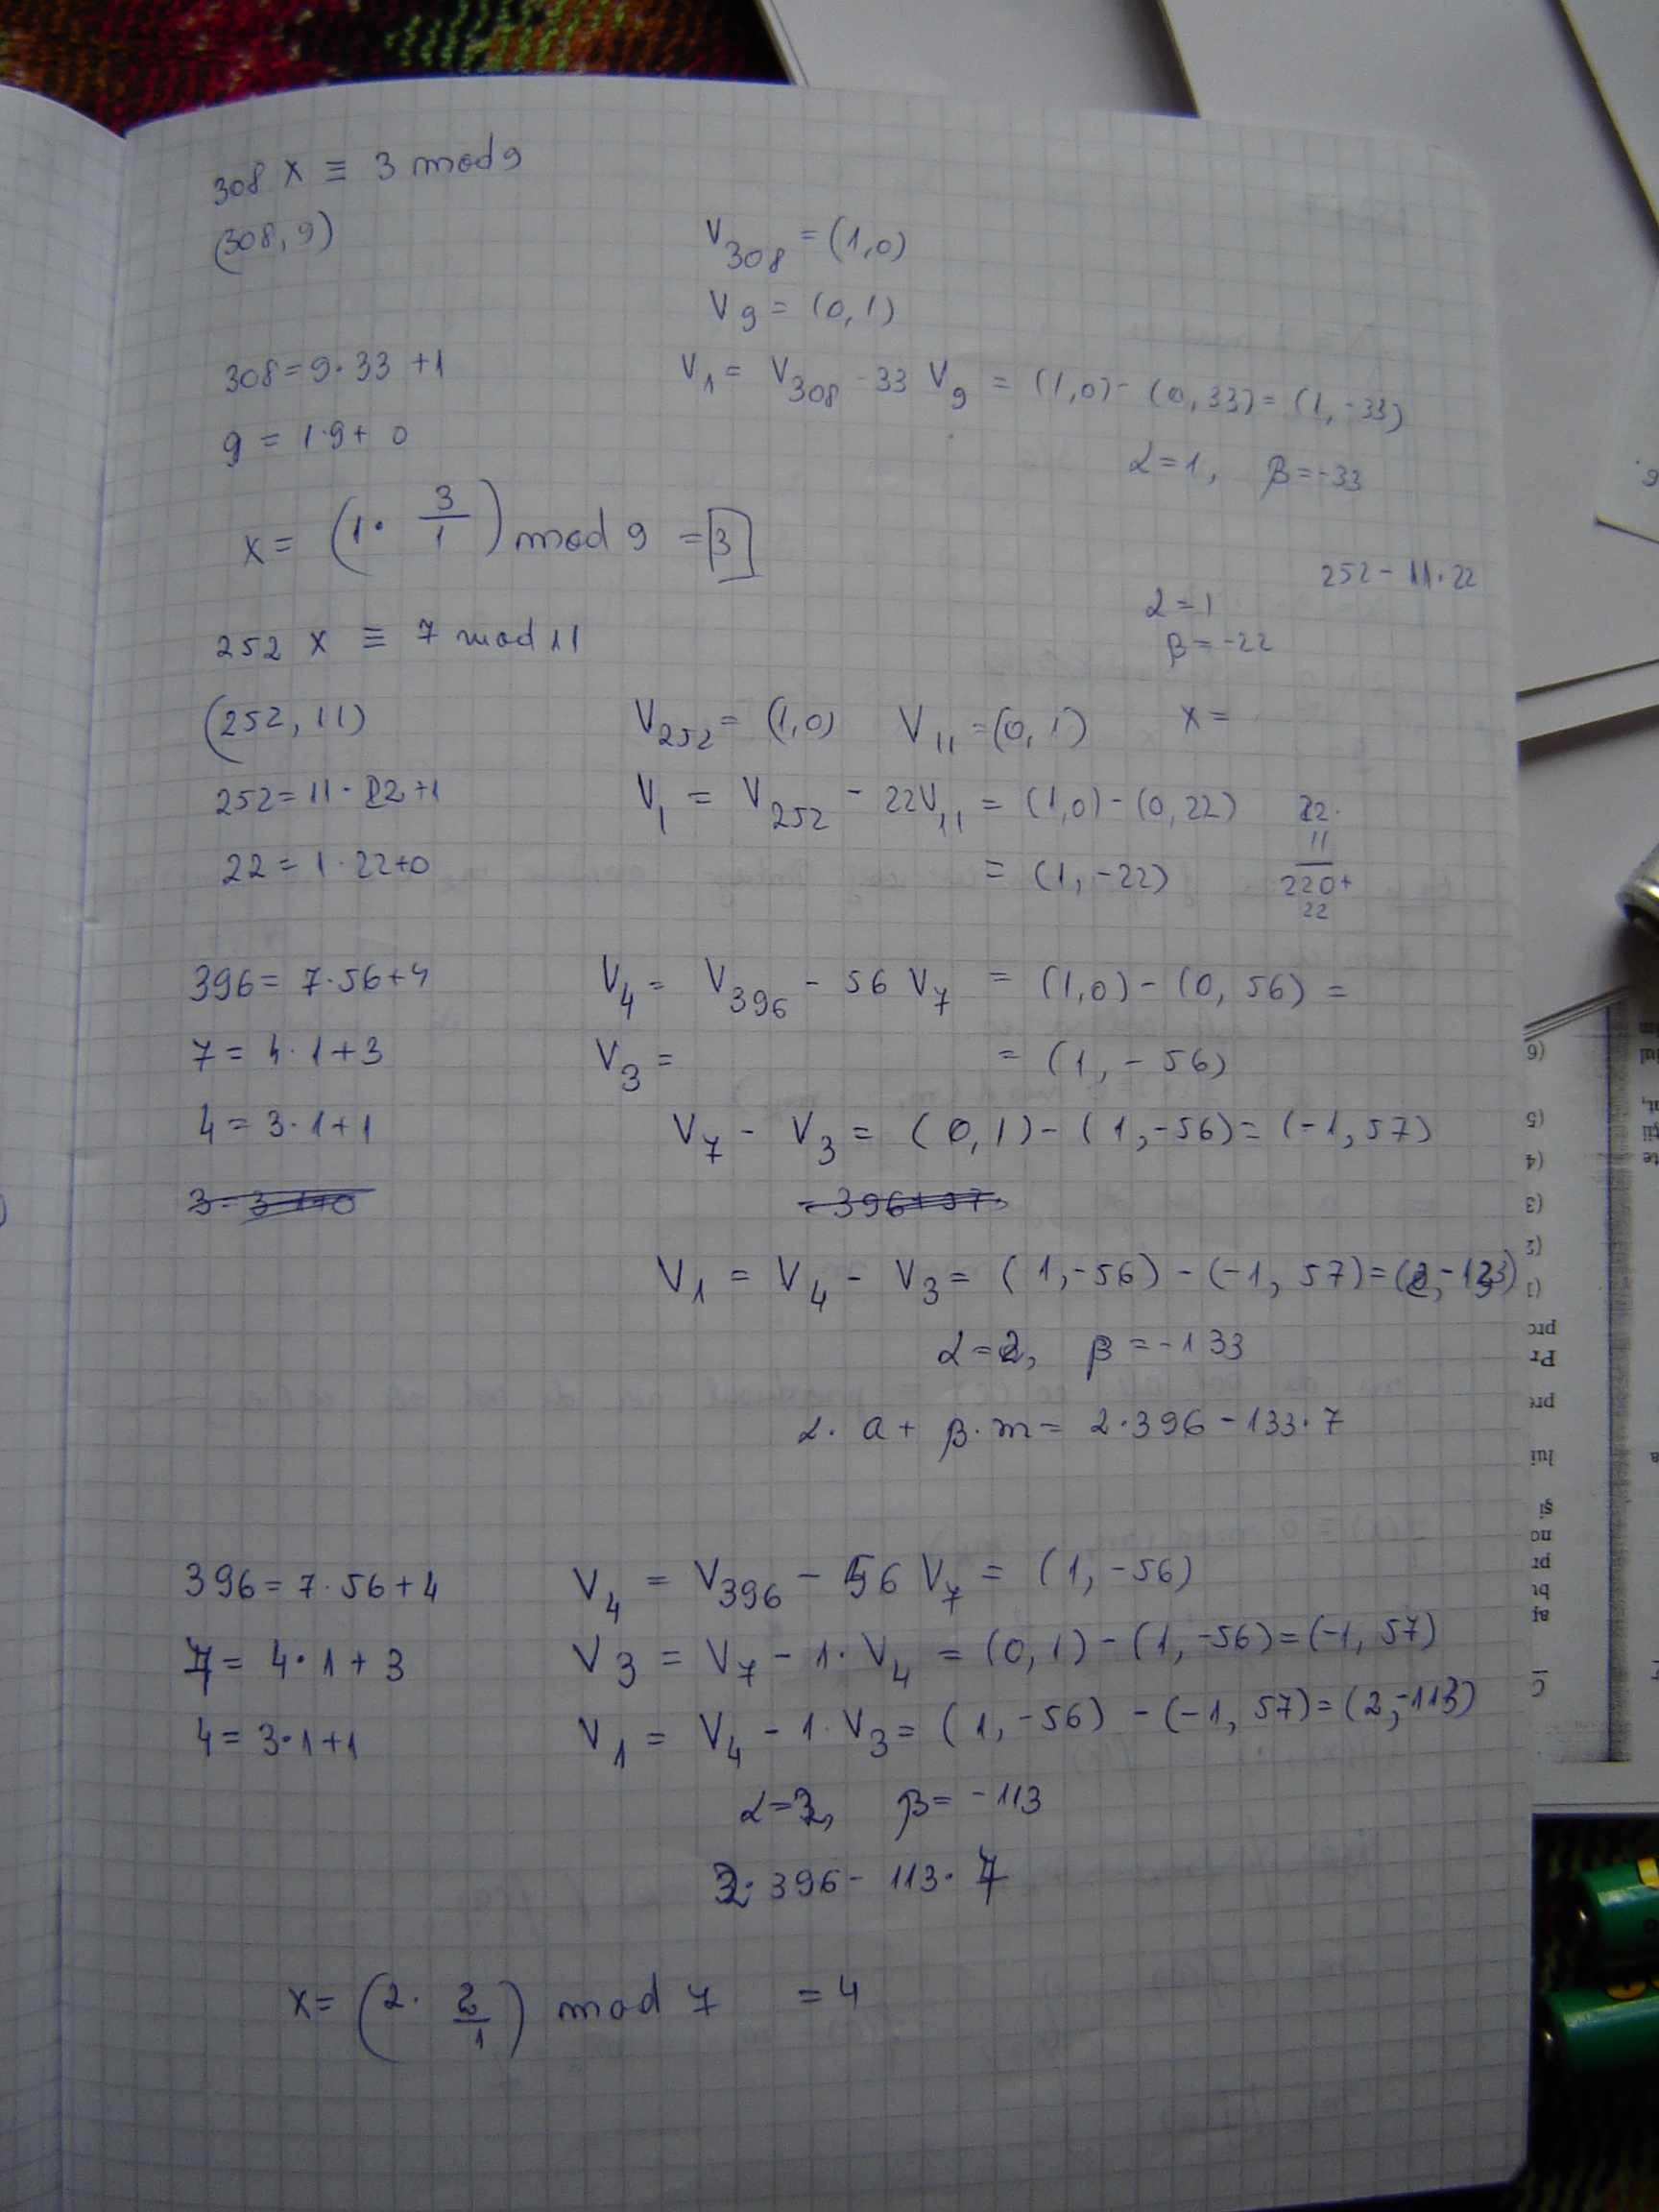 308 x ≡ 3 mod 9
(308, 9)
V308 = (1,0)
V9 = (0,1)
308 = 9·33 + 1
V1 = V308 - 33 V9 = (1,0) - (0,33) = (1,-33)
9 = 1·9 + 0
α = 1, β = -33
x = (1· 3/1) mod 9 = 3
252 - 11·22
α = 1
β = -22
252 x ≡ 7 mod 11
(252, 11)
V252 = (1,0) V11 = (0,1)
x =
252 = 11·22 + 1
V1 = V252 - 22V11 = (1,0) - (0,22)
22·
11
220+
22
22 = 1·22+0
= (1,-22)
396 = 7·56+4
V4 = V396 - 56 V7 = (1,0) - (0,56) =
7 = 4·1+3
V3 = = (1, -56)
4 = 3·1+1
V7 - V3 = (0,1) - (1,-56) = (-1,57)
3 = 3·1+0
= 396+57
V1 = V4 - V3 = (1,-56) - (-1, 57) = (2,-133)
α = 2, β = -133
α·a + β·m = 2·396 - 133·7
396 = 7·56+4
V4 = V396 - 56 V7 = (1,-56)
7 = 4·1+3
V3 = V7 - 1·V4 = (0,1) - (1,-56) = (-1, 57)
4 = 3·1+1
V1 = V4 - 1·V3 = (1,-56) - (-1, 57) = (2,-113)
α = 2, β = -113
2·396 - 113·7
x = (2· 2/1) mod 7 = 4
(6
(5
(4
(3
(2
(1
pro
Pr
pre
lui
şi
no
pr